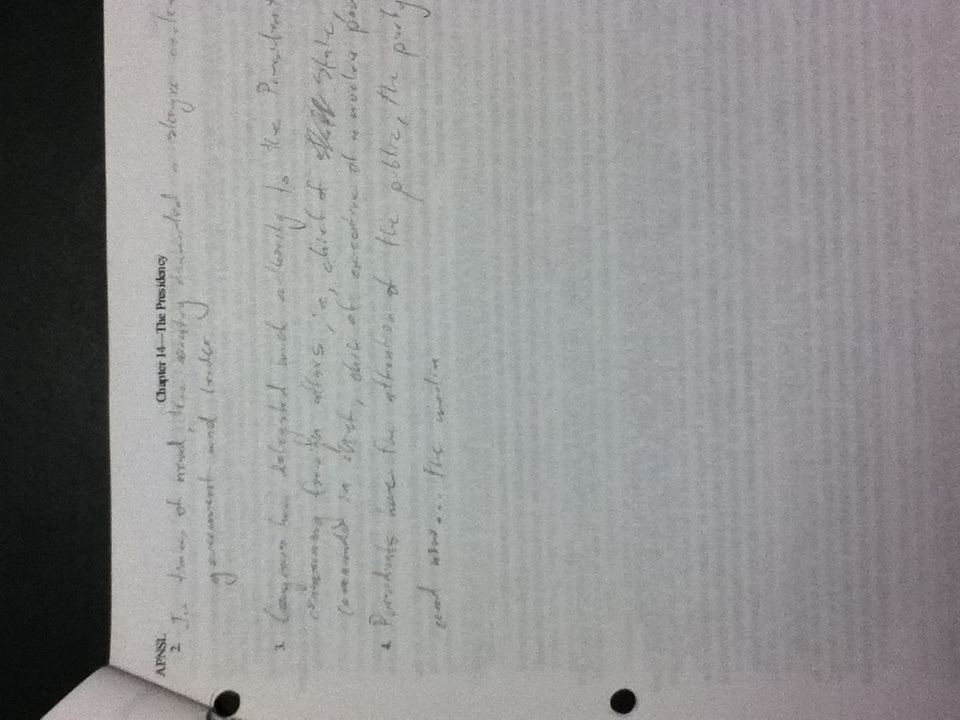 APNSL Chapter 14—The Presidency
2. In times of need, the country demanded a
government and leader
3. Congress has delegated much authority to the President
concerning foreign affairs, i.e, chief of State,
in chief, chief of executive of a nuclear
4. Presidents have the attention of the public, the party
and now... the media